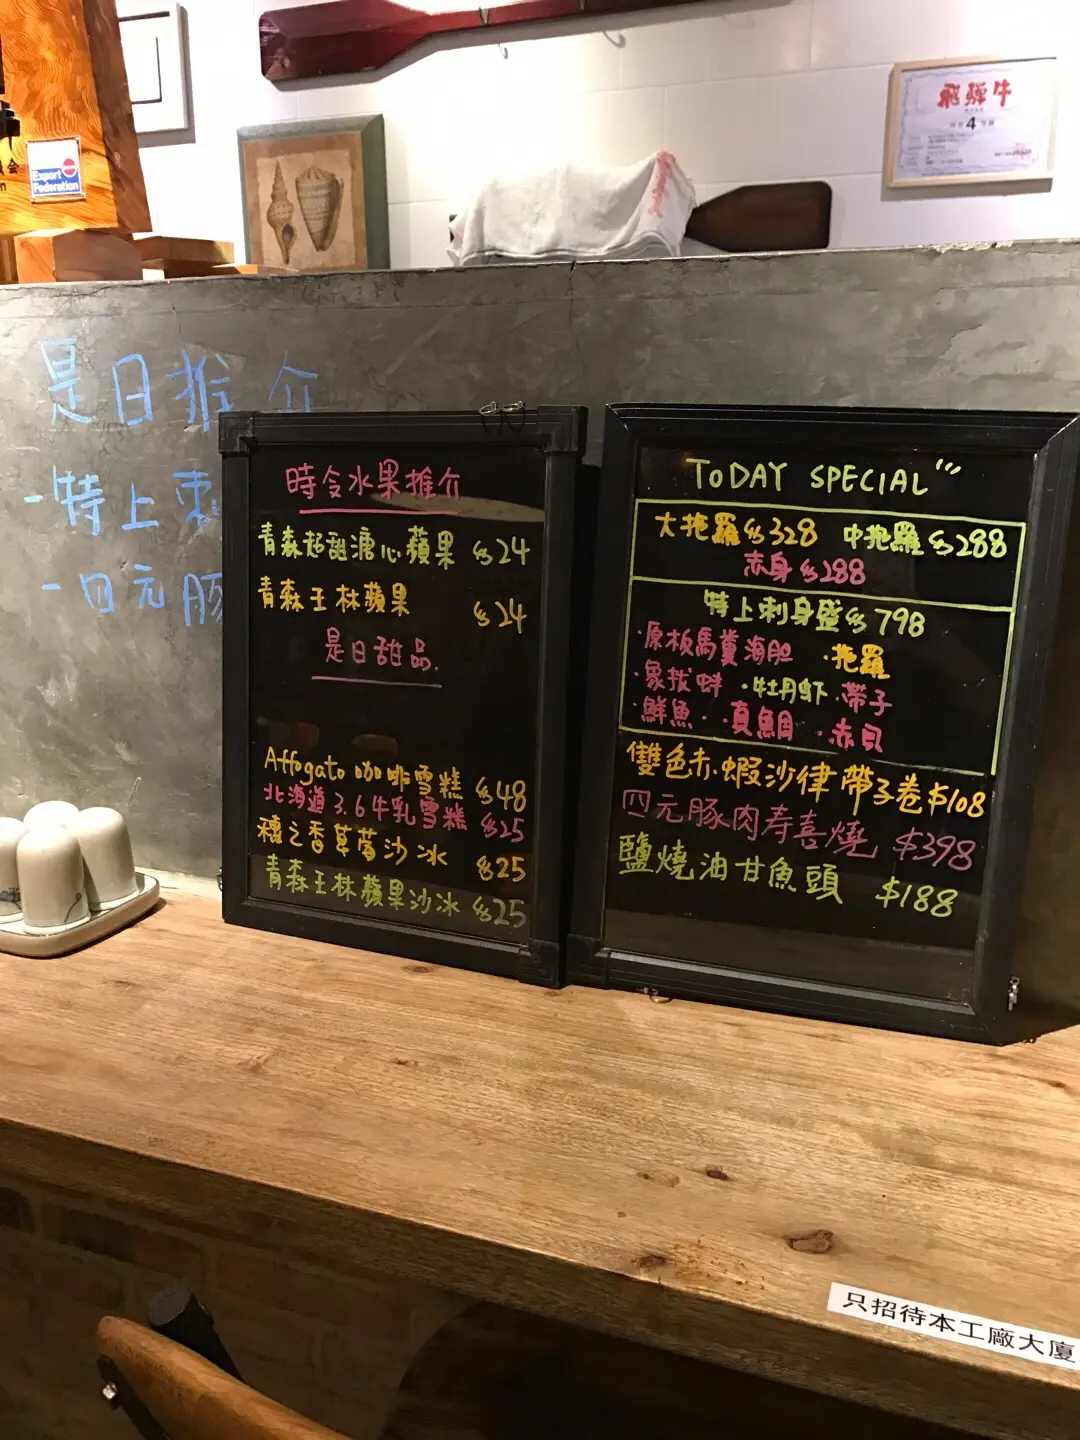 Export
Federation
飛騨牛
4
是日推介
-特上刺
-四元豚
時令水果推介
青森超甜溏心蘋果 $24
青森王林蘋果 $24
是日甜品.
Affogato 咖啡雪糕 $48
北海道3.6牛乳雪糕 $25
穗之香草莓沙冰 $25
青森王林蘋果沙冰 $25
TODAY SPECIAL
大拖羅 $328 中拖羅 $288
赤身 $288
特上刺身盛 $798
·原板馬糞海胆 ·拖羅
·象拔蚌 ·牡丹虾 ·帶子
·鮮魚 ·真鯛 ·赤貝
雙色赤·蝦沙律帶子卷 $108
四元豚肉寿喜燒 $398
鹽燒油甘魚頭 $188
只招待本工廠大廈